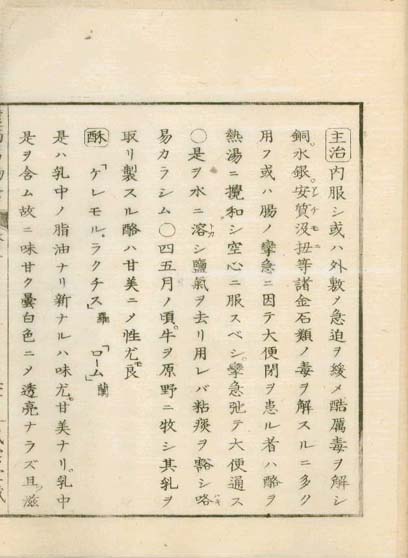 主治 内服シ或ハ外敷ノ急迫ヲ緩メ酷厲毒ヲ解シ
銅。水銀。安質没扭等諸金石類ノ毒ヲ解スルニ多ク
用フ或ハ腸ノ攣急ニ因テ大便閉ヲ患ル者ハ酪ヲ
熱湯ニ攪和シ空心ニ服スベシ。攣急弛テ大便通ス
〇是ヲ水ニ溶シ鹽氣ヲ去リ用レバ粘痰ヲ豁シ咯
易カラシム〇四五月ノ頃。牛ヲ原野ニ牧シ其乳ヲ
取リ製スル酪ハ甘美ニメ性尤モ良
酥 「ケレモル。ラクチス」羅 「ローム」蘭
是ハ乳中ノ脂油ナリ新ナルハ味尤モ甘美ナリ。乳中
是ヲ含ム故ニ味甘ク曇白色ニメ透亮ナラズ且滋